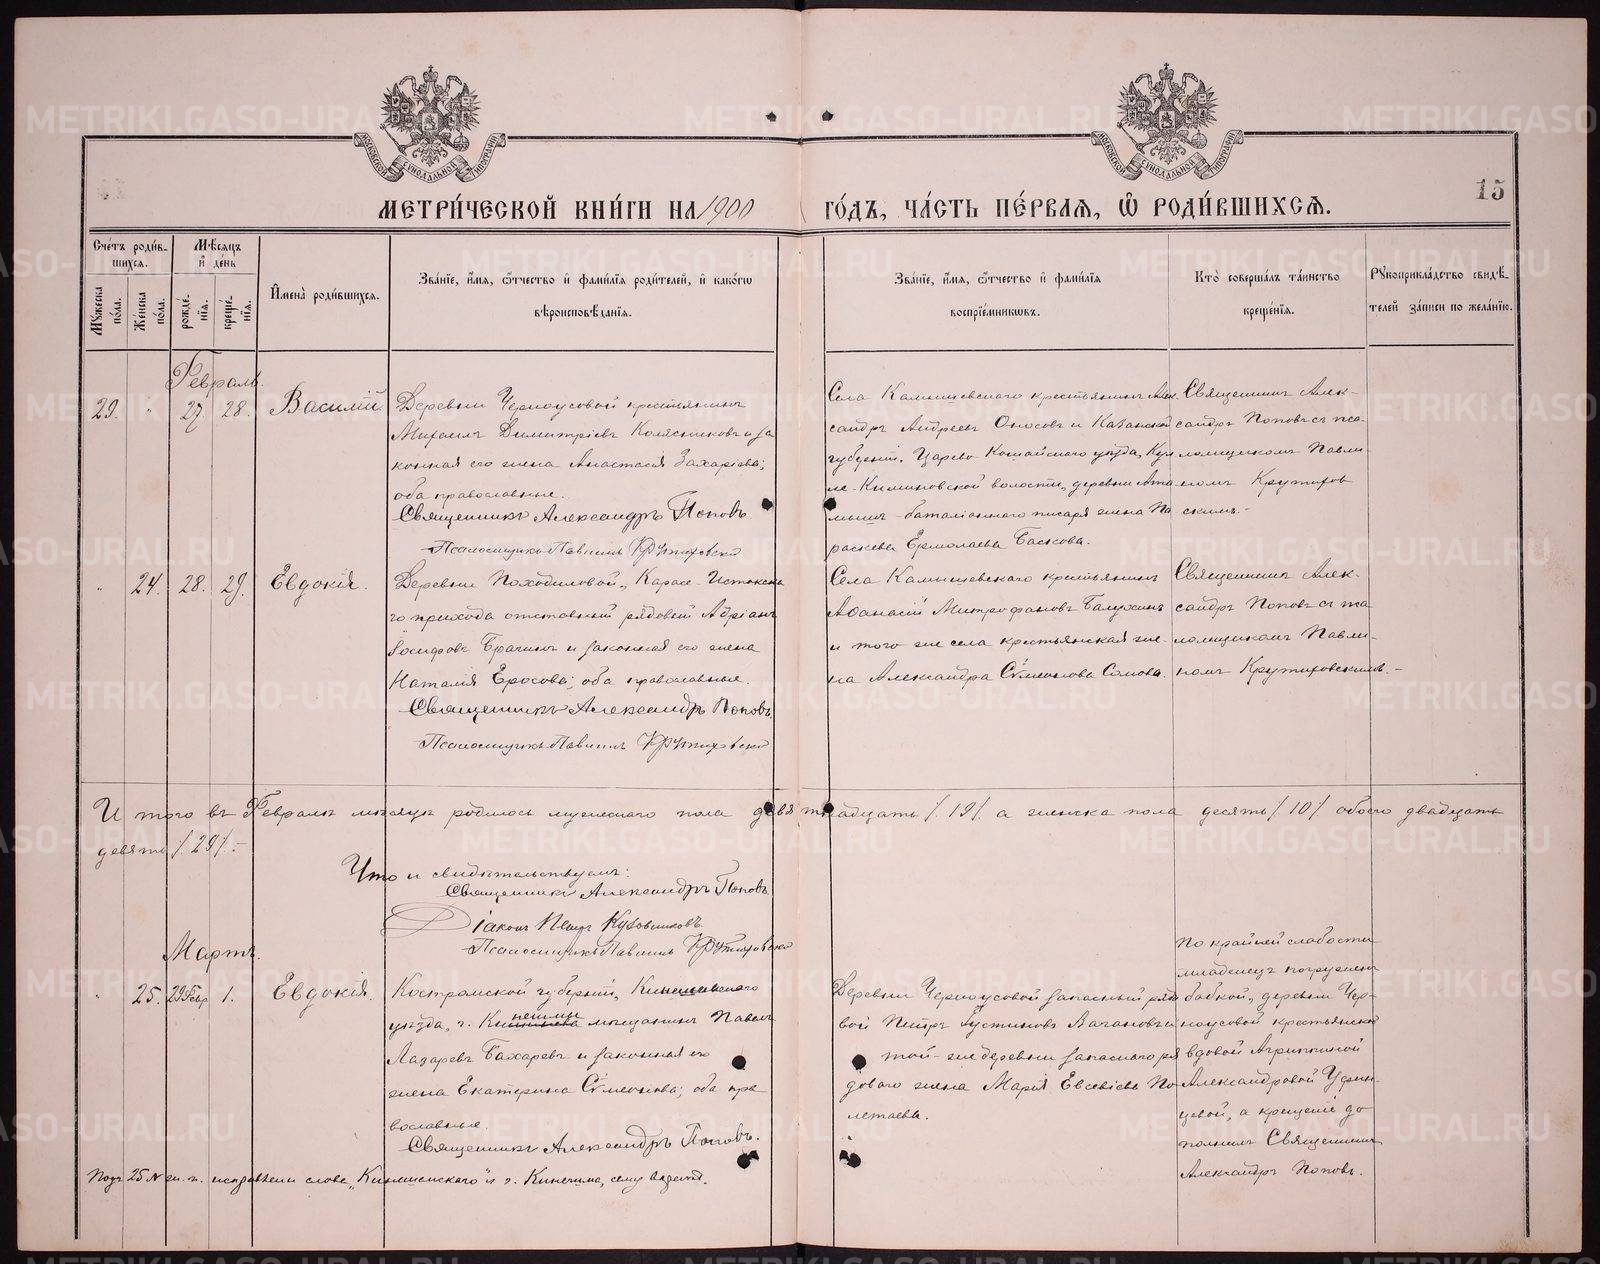 METRIKI.GASO-URAL.RU
МОСКОВСКОЙ СѴНОДАЛЬНОЙ ТИПОГРАФІИ
МОСКОВСКОЙ СѴНОДАЛЬНОЙ ТИПОГРАФІИ
15
МЕТРИ́ЧЕСКОЙ КНИ́ГИ НА 1900 ГО́ДЪ, ЧА́СТЬ ПЕ́РВАЯ, Ѽ РОДИ́ВШИХСЯ.
Сче́тъ роди́в-
шихся.
Мѣ́сяцъ
и҆ де́нь
Мꙋ́жеска по́ла.
Же́нска по́ла.
рожде́нїя.
креще́нїя.
И҆мена̀ роди́вшихся.
Зва́нїе, и҆́мя, ѻ҆́тчество и҆ фами́лїя роди́телей, и҆ како́гѡ
вѣроисповѣ́данїя.
Зва́нїе, и҆́мя, ѻ҆́тчество и҆ фами́лїя
воспрїе́мникѡвъ.
Кто̀ соверша́лъ та́инство
креще́нїя.
Рꙋкоприкла́дство свидѣ́-
телей за́писи по жела́нїю.
Февраль.
29. " 27 28. Василій
Деревни Черноусовой крестьянинъ
Михаилъ Димитріевъ и за
конная его жена Анастасія Захаріева;
оба православные.
Священникъ Александръ Поповъ.
Псаломщикъ Павлинъ Крутиховскій
Села Камышевскаго крестьянинъ Алек
сандръ Андреевъ Оносовъ и Казанской
губерніи, Царево Кокшайскаго уѣзда, Кул
ле-Киминовской волости, деревни Ата
мышъ - баталіоннаго писаря жена Па
раскева Ермолаева Баскова.
Священникъ Алек-
сандръ Поповъ съ пса
ломщикомъ Павли-
номъ Крутихов
скимъ.-
" 24. 28. 29. Евдокія.
Деревни Походиловой, Карасе-Истокска
го прихода отставный рядовой Адріанъ
Іосифовъ Брагинъ и законная его жена
Наталія Еросова; оба православные.
Священникъ Александръ Поповъ.
Псаломщикъ Павлинъ Крутиховскій
Села Камышевскаго крестьянинъ
Аѳанасій Митрофановъ Балухинъ
и того же села крестьянская же-
на Александра Сѵмеонова Сомова.
Священникъ Алек-
сандръ Поповъ съ пса
ломщикомъ Павли-
номъ Крутиховскимъ.-
Итого въ Февралѣ мѣсяцѣ родилось мужескаго пола девятнадцать /19/ а женска пола десять /10/ обоего двадцать
девять /29/.-
Что и свидѣтельствуемъ:
Священникъ Александръ Поповъ.
Діаконъ Петръ Кузовниковъ
Псаломщикъ Павлинъ Крутиховскій
Мартъ.
" 25. 29 Февр 1. Евдокія.
Костромской губерніи, Кинешемскаго
уѣзда, г. Кинешмы мѣщанинъ Павелъ
Лазаревъ Бахаревъ и законная его
жена Екатерина Сѵмеонова; оба пра
вославные.
Священникъ Александръ Поповъ.
Деревни Черноусовой запасный рядо
вой Петръ Іустиновъ Вагановъ и
той-же деревни запаснаго ря
доваго жена Марія Евсевіева По
летаева.
По крайней слабости
младенецъ погруженъ
бабкой, деревни Чер-
ноусовой крестьянской
вдовой Агриппиной
Александровой Уфин-
цевой, а крещеніе до
полнилъ Священникъ
Александръ Поповъ.
Подъ 25 № ж. п. исправлены слова „Кинешемскаго" и г. Кинешма, сему вѣрить.